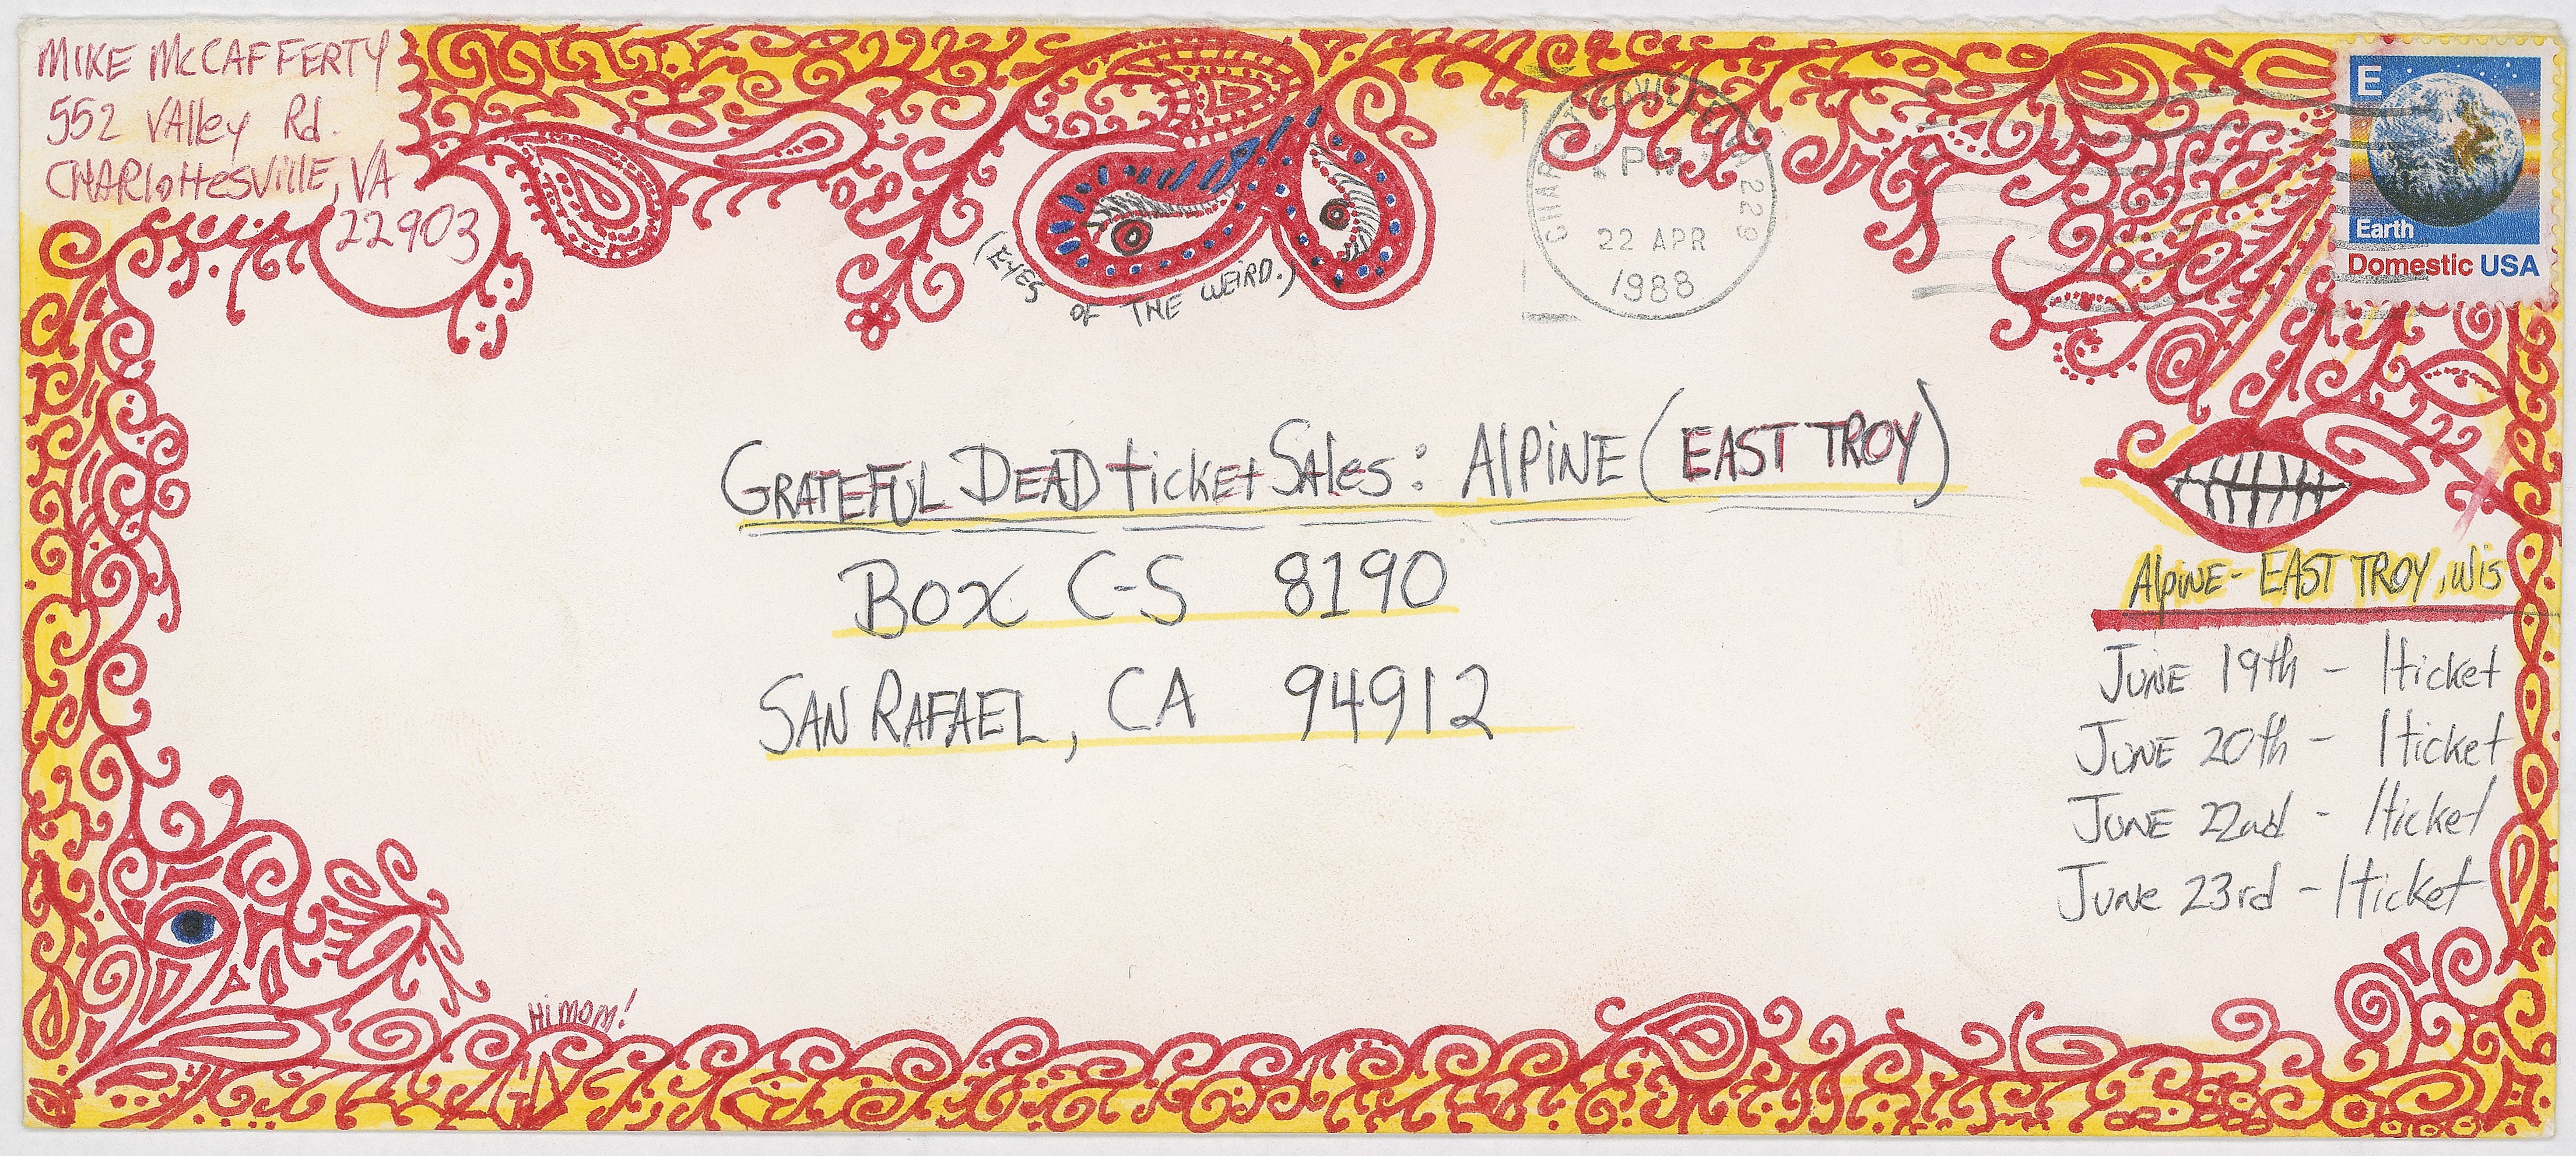 MIKE McCAFFERTY
552 VAlley Rd.
CHARlottesVillE, VA
22903
(EYES OF THE WEIRD.)
PM
22 APR
1988
E
Earth
Domestic USA
GRATEFUL DEAD ticket SAles: AlPiNE (EAST TROY)
Box C-S 8190
SAN RAFAEL, CA 94912
AlpiNE - EAST TROY, Wis
JUNE 19th - 1 ticket
JUNE 20th - 1 ticket
JUNE 22nd - 1 ticket
JUNe 23rd - 1 ticket
Hi mom!